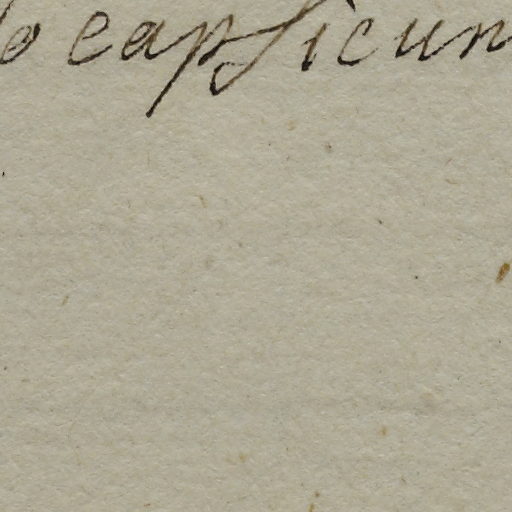 o capsicum